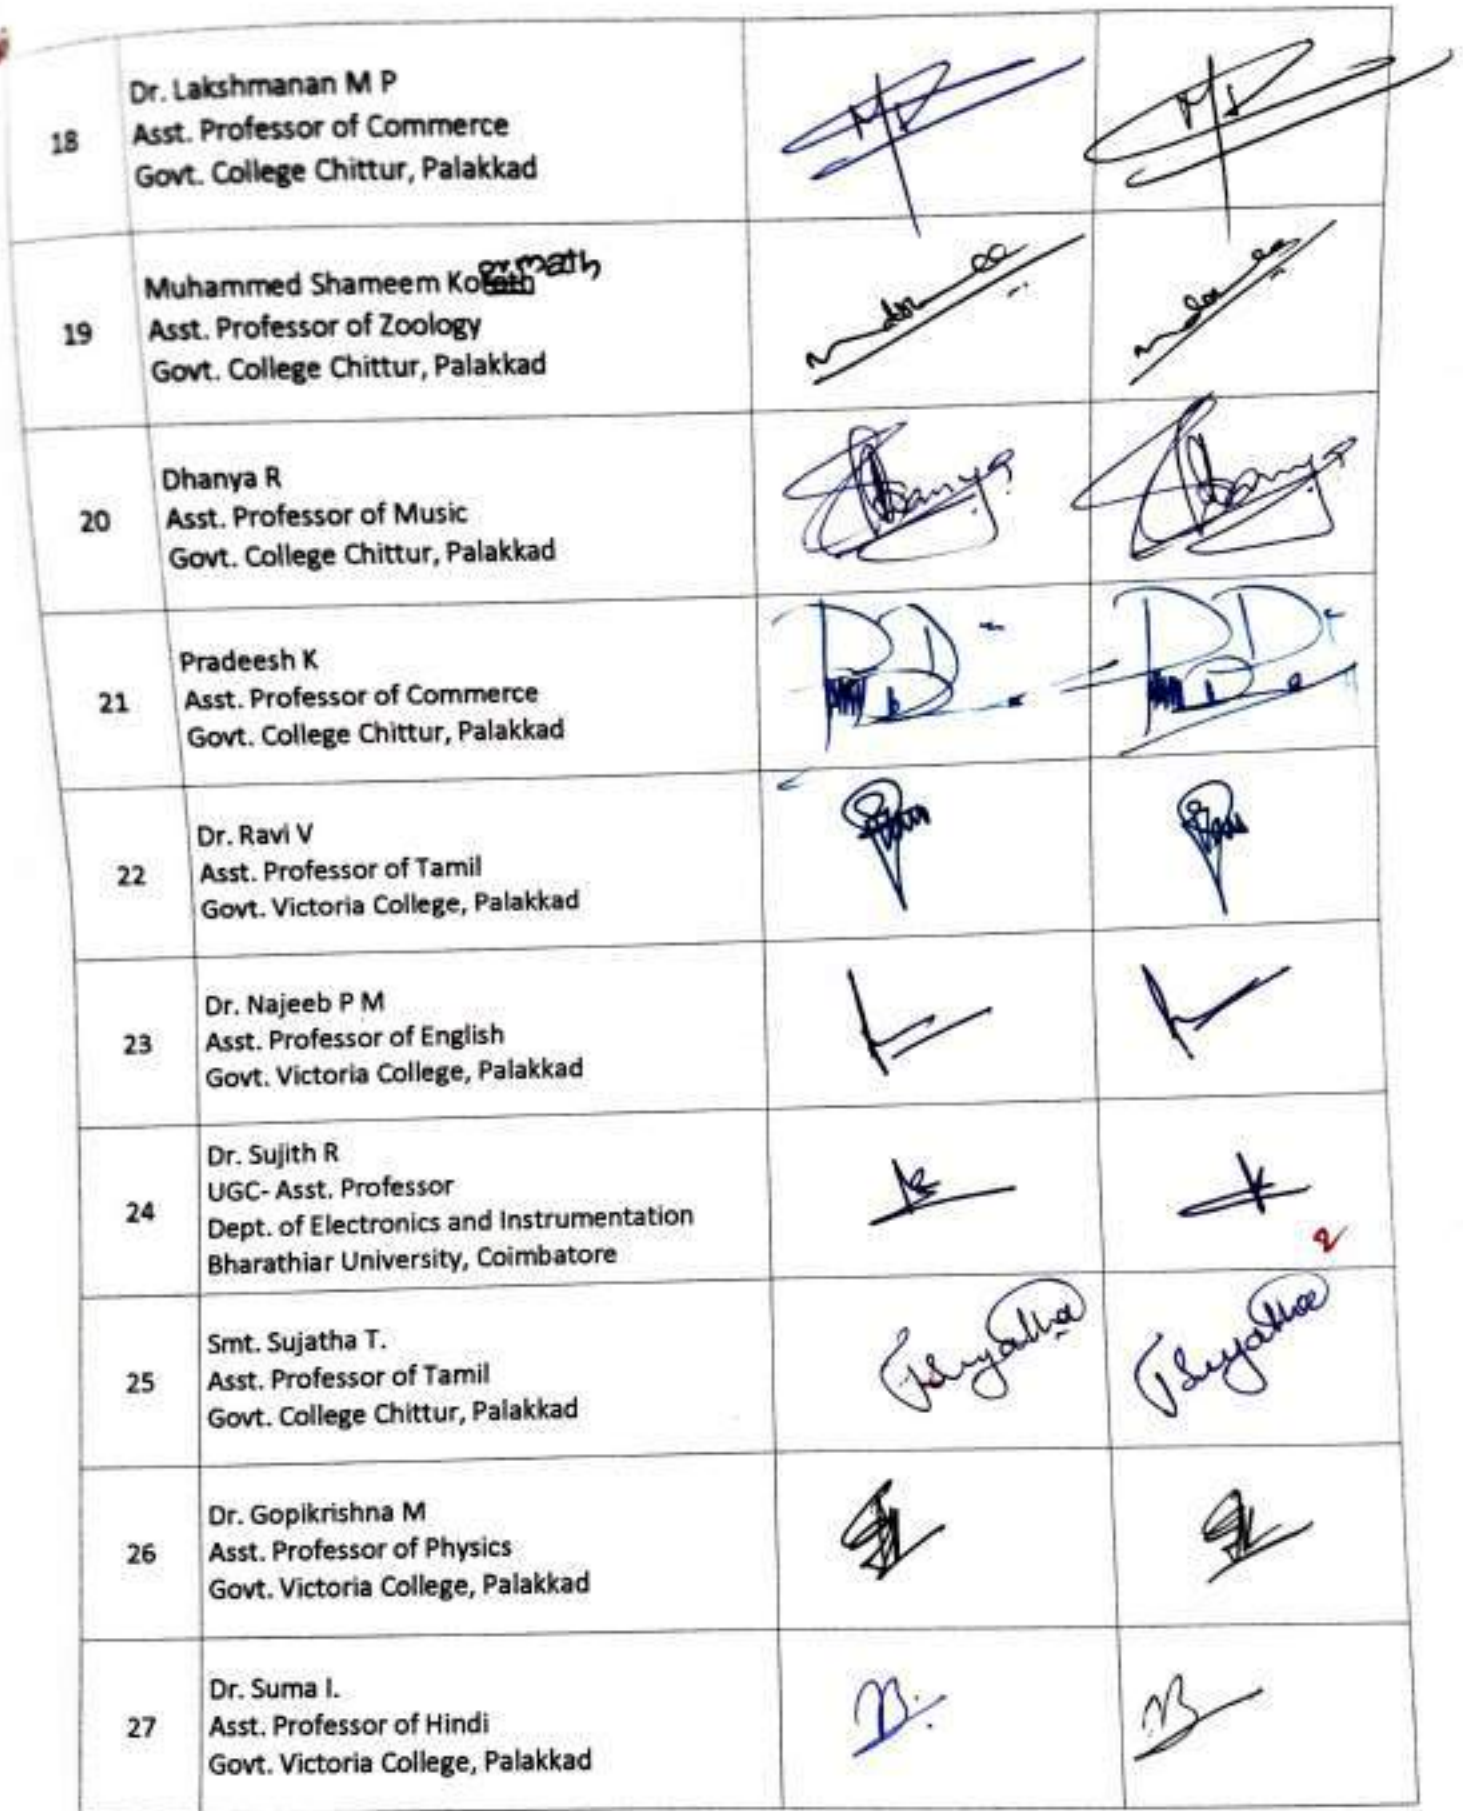 18
Dr. Lakshmanan M P
Asst. Professor of Commerce
Govt. College Chittur, Palakkad
19
Muhammed Shameem Kormath
Asst. Professor of Zoology
Govt. College Chittur, Palakkad
20
Dhanya R
Asst. Professor of Music
Govt. College Chittur, Palakkad
Dhanya Dhanya
21
Pradeesh K
Asst. Professor of Commerce
Govt. College Chittur, Palakkad
22
Dr. Ravi V
Asst. Professor of Tamil
Govt. Victoria College, Palakkad
23
Dr. Najeeb P M
Asst. Professor of English
Govt. Victoria College, Palakkad
24
Dr. Sujith R
UGC- Asst. Professor
Dept. of Electronics and Instrumentation
Bharathiar University, Coimbatore
25
Smt. Sujatha T.
Asst. Professor of Tamil
Govt. College Chittur, Palakkad
TSujatha TSujatha
26
Dr. Gopikrishna M
Asst. Professor of Physics
Govt. Victoria College, Palakkad
27
Dr. Suma I.
Asst. Professor of Hindi
Govt. Victoria College, Palakkad